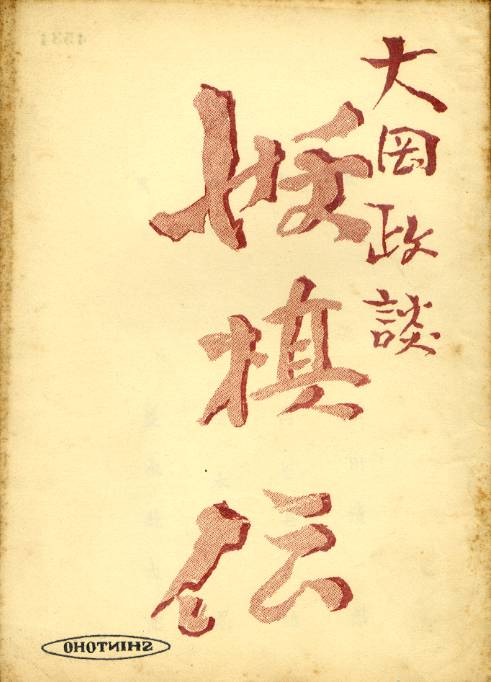 大岡政談
妖棋伝
SHINTOHO